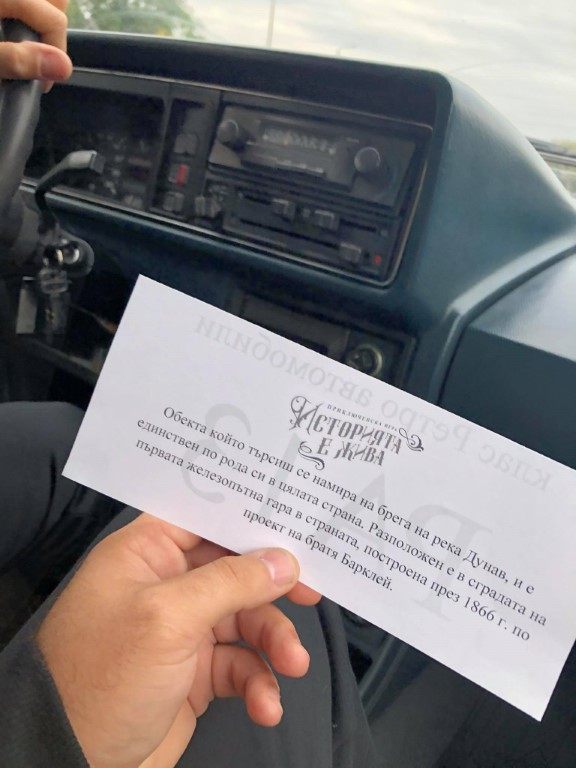 ПРИКЛЮЧЕНСКА ИГРА
ИСТОРИЯТА
Е ЖИВА
Обекта който търсиш се намира на брега на река Дунав, и е
единствен по рода си в цялата страна. Разположен е в сградата на
първата железопътна гара в страната, построена през 1866 г. по
проект на братя Барклей.
клас Ретро автомобили